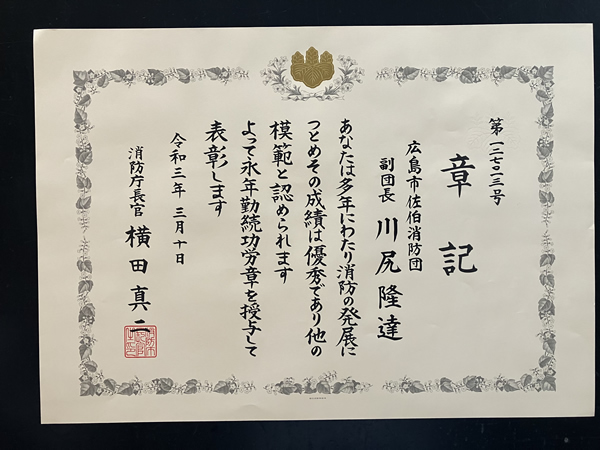 第一二七二三号
章記
広島市佐伯消防団
副団長 川尻隆達
あなたは多年にわたり消防の発展に
つとめその成績は優秀であり他の
模範と認められます
よって永年勤続功労章を授与して
表彰します
令和三年三月十日
消防庁長官 横田真二